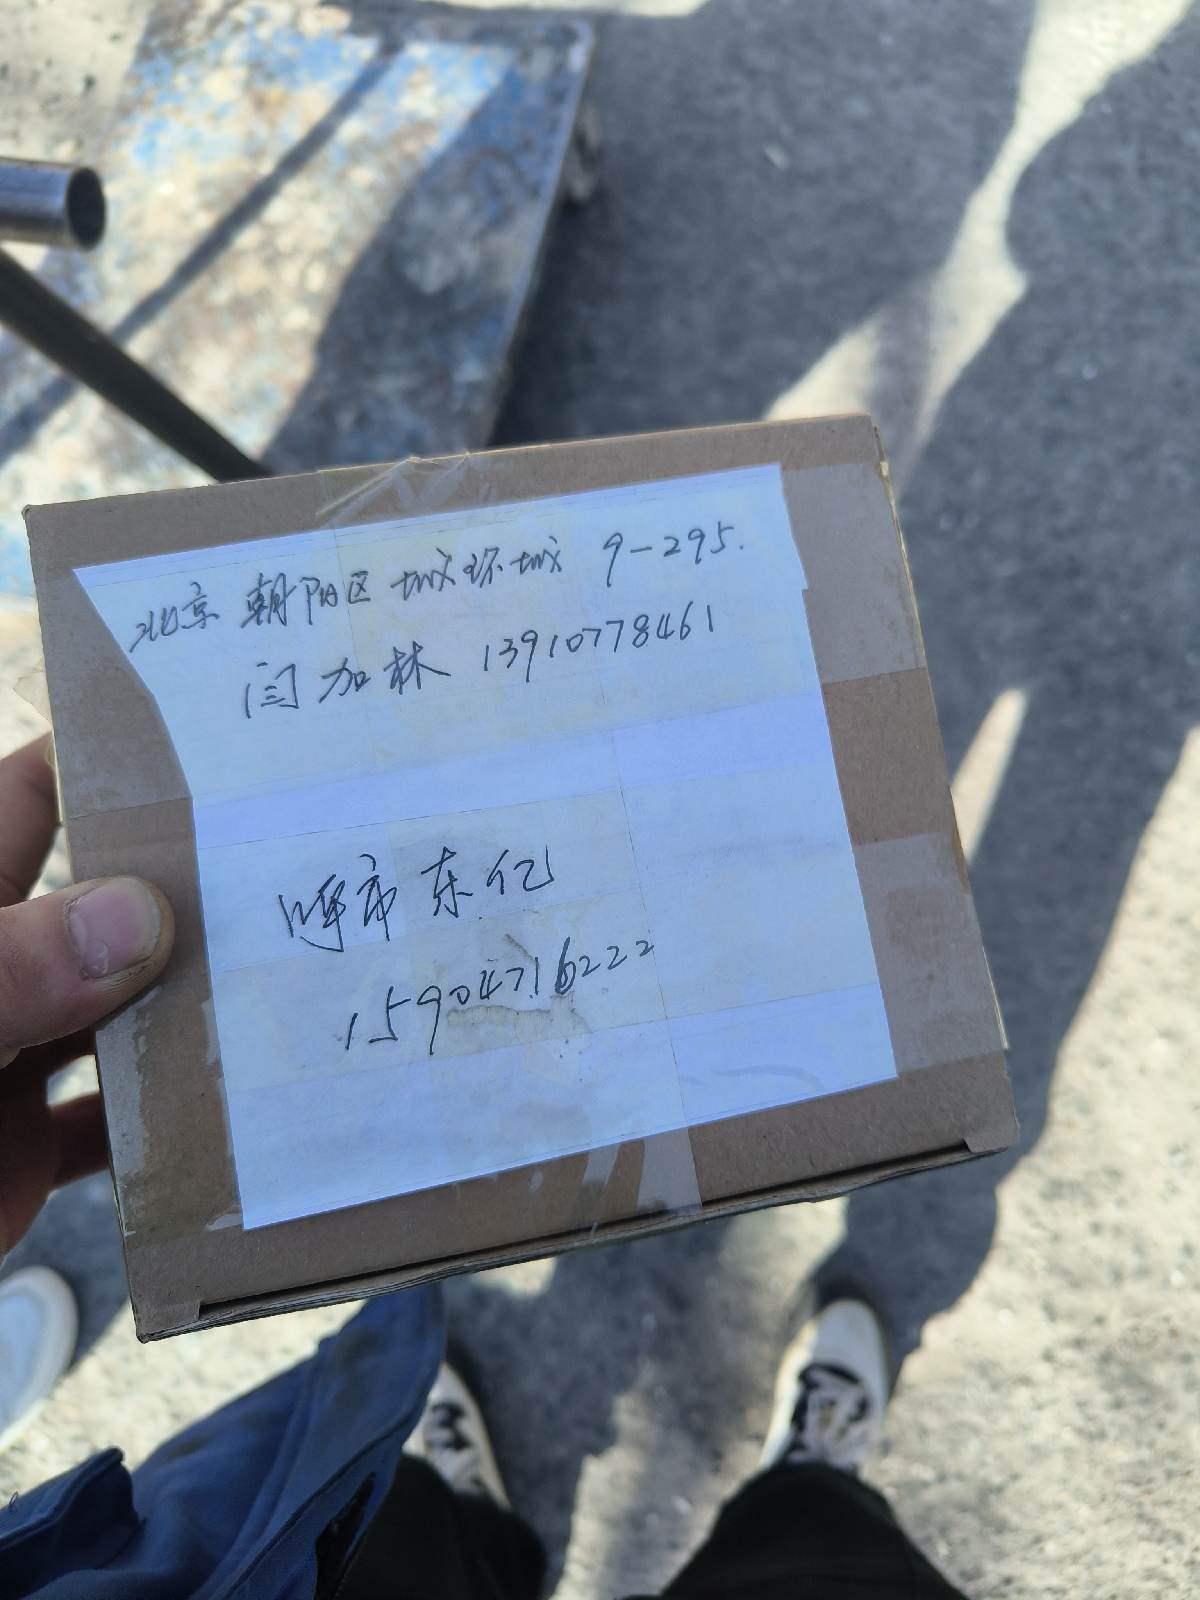 北京 朝阳区 城环城 9-295.
闫加林 13910778461
呼市东亿
15904716222